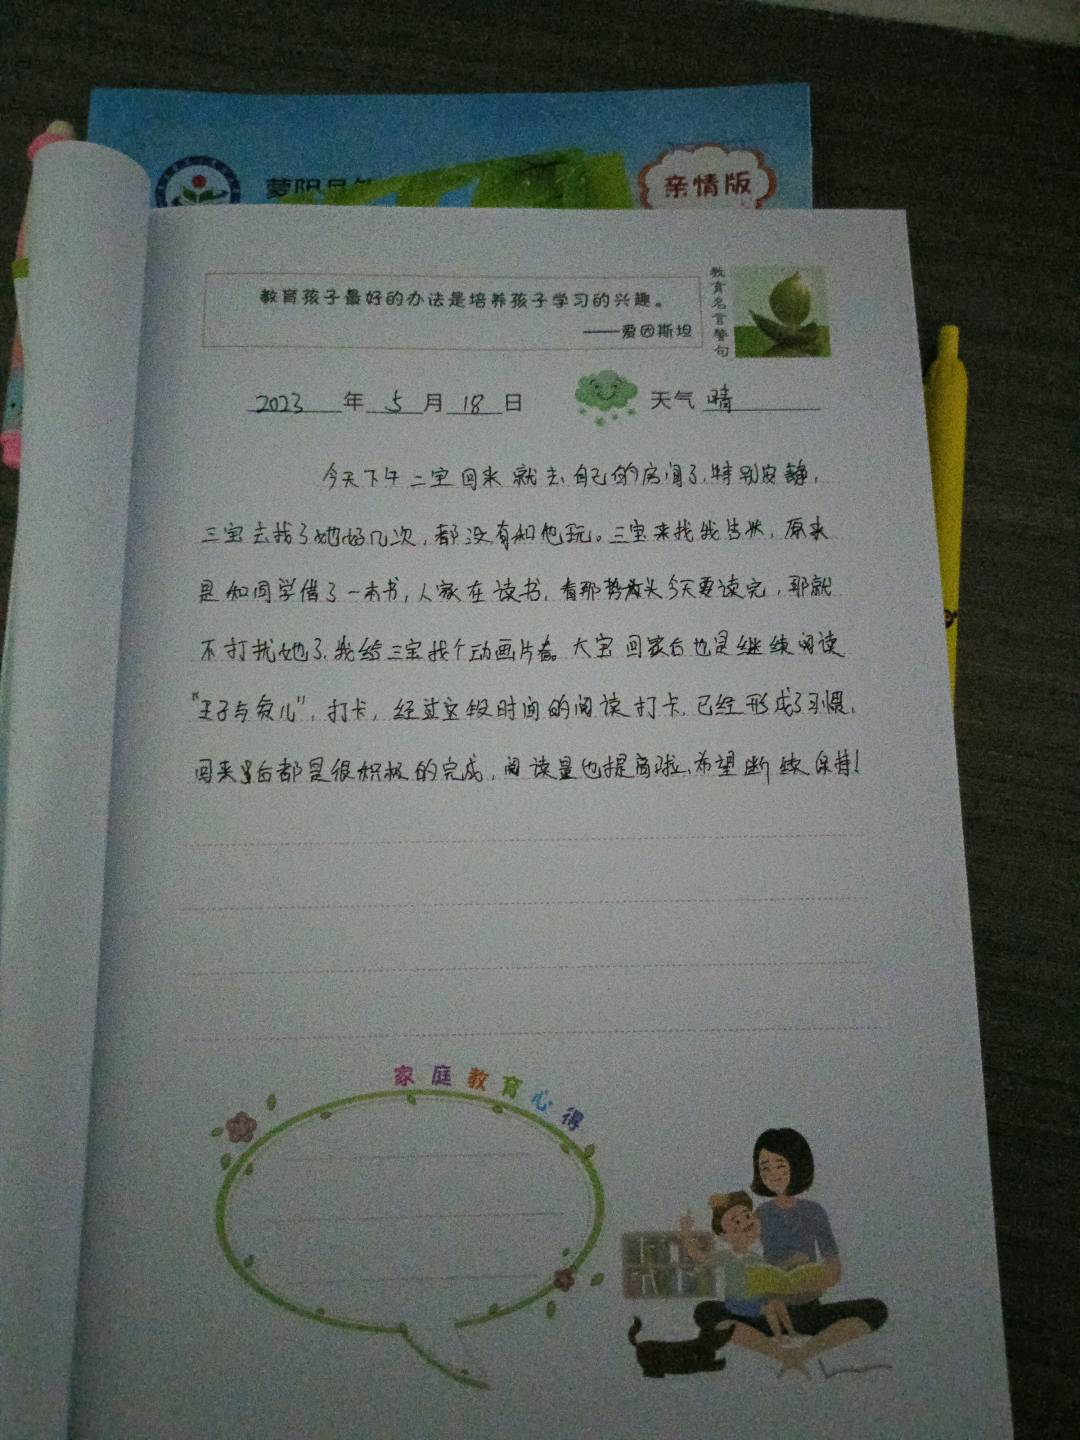 蒙阴县
亲情版
教育孩子最好的办法是培养孩子学习的兴趣。
——爱因斯坦
教育名言警句
2023年5月18日
天气 晴
今天下午二宝回来就去自己的房间了,特别安静,
三宝去找了她好几次,都没有和他玩。三宝来找我告状,原来
是和同学借了一本书,人家在读书,看那势头今天要读完,那就
不打扰她了,我给三宝找个动画片看。大宝回家后也是继续阅读
“王子与贫儿”,打卡,经过这段时间的阅读打卡,已经形成了习惯,
回来后都是很积极的完成,阅读量也提高啦,希望继续保持!
家庭教育心得